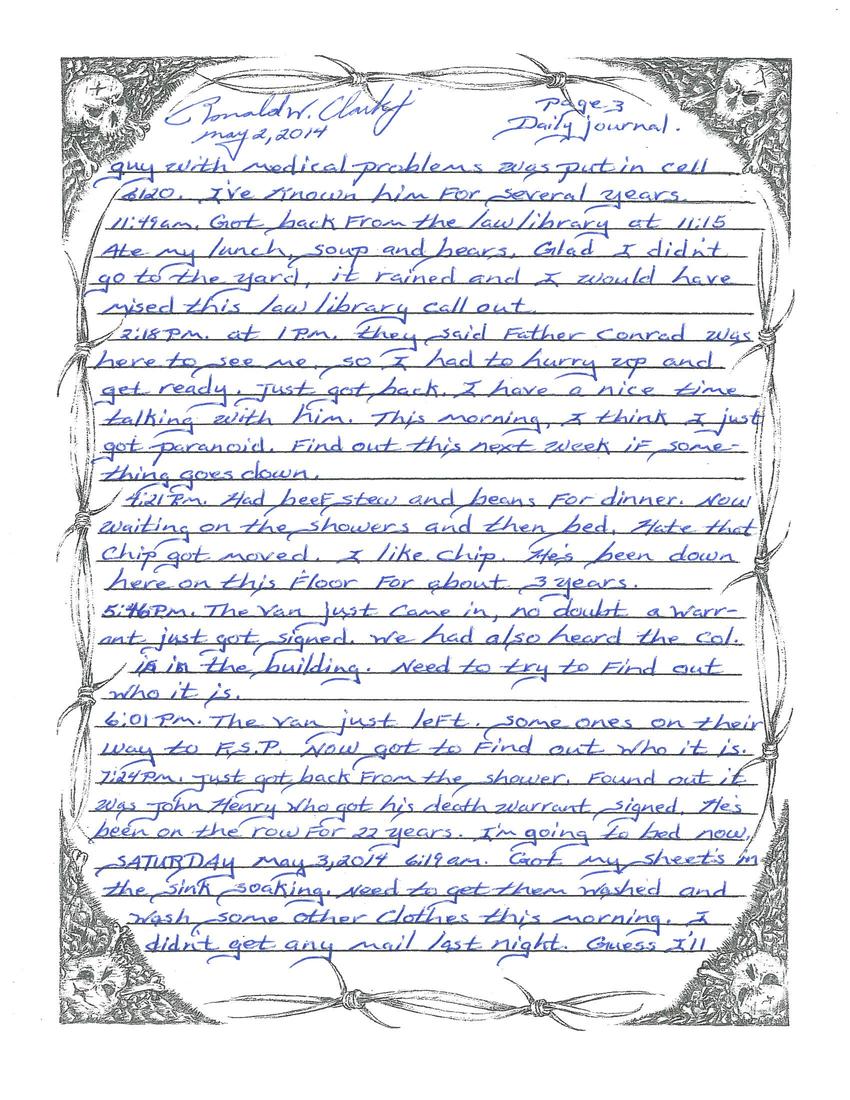 Ronald W. Clark Jr Page 3
May 2, 2014 Daily journal.
guy with medical problems was put in cell
6120. I've Known him For several years.
11:49am. Got back From the law library at 11:15
Ate my lunch, soup and bears. Glad I didn't
go to the yard, it rained and I would have
mised this law library call out.
2:18 P.m. at 1 P.m. they said Father Conrad was
here to see me, so I had to hurry up and
get ready. Just got back. I have a nice time
talking with him. This morning, I think I just
got paranoid. Find out this next week iF some-
thing goes down.
4:21 P.m. Had beeF stew and beans For dinner. Now
waiting on the showers and then bed. Hate that
Chip got moved. I like chip. He's been down
here on this Floor For about 3 years.
5:46 P.m. The van just came in, no doubt a warr-
ant just got signed. We had also heard the Col.
is in the building. Need to try to Find out
who it is.
6:01 P.m. The van just leFt. Some ones on their
way to F.S.P. Now got to Find out who it is.
7:24 P.m. Just got back From the shower. Found out it
was John Henry who got his death warrant signed. He's
been on the row For 22 years. I'm going to bed now.
SATURDAY May 3, 2014 6:19 am. Got my sheet's in
the sink soaking. Need to get them washed and
wash some other Clothes this morning. I
didn't get any mail last night. Guess I'll